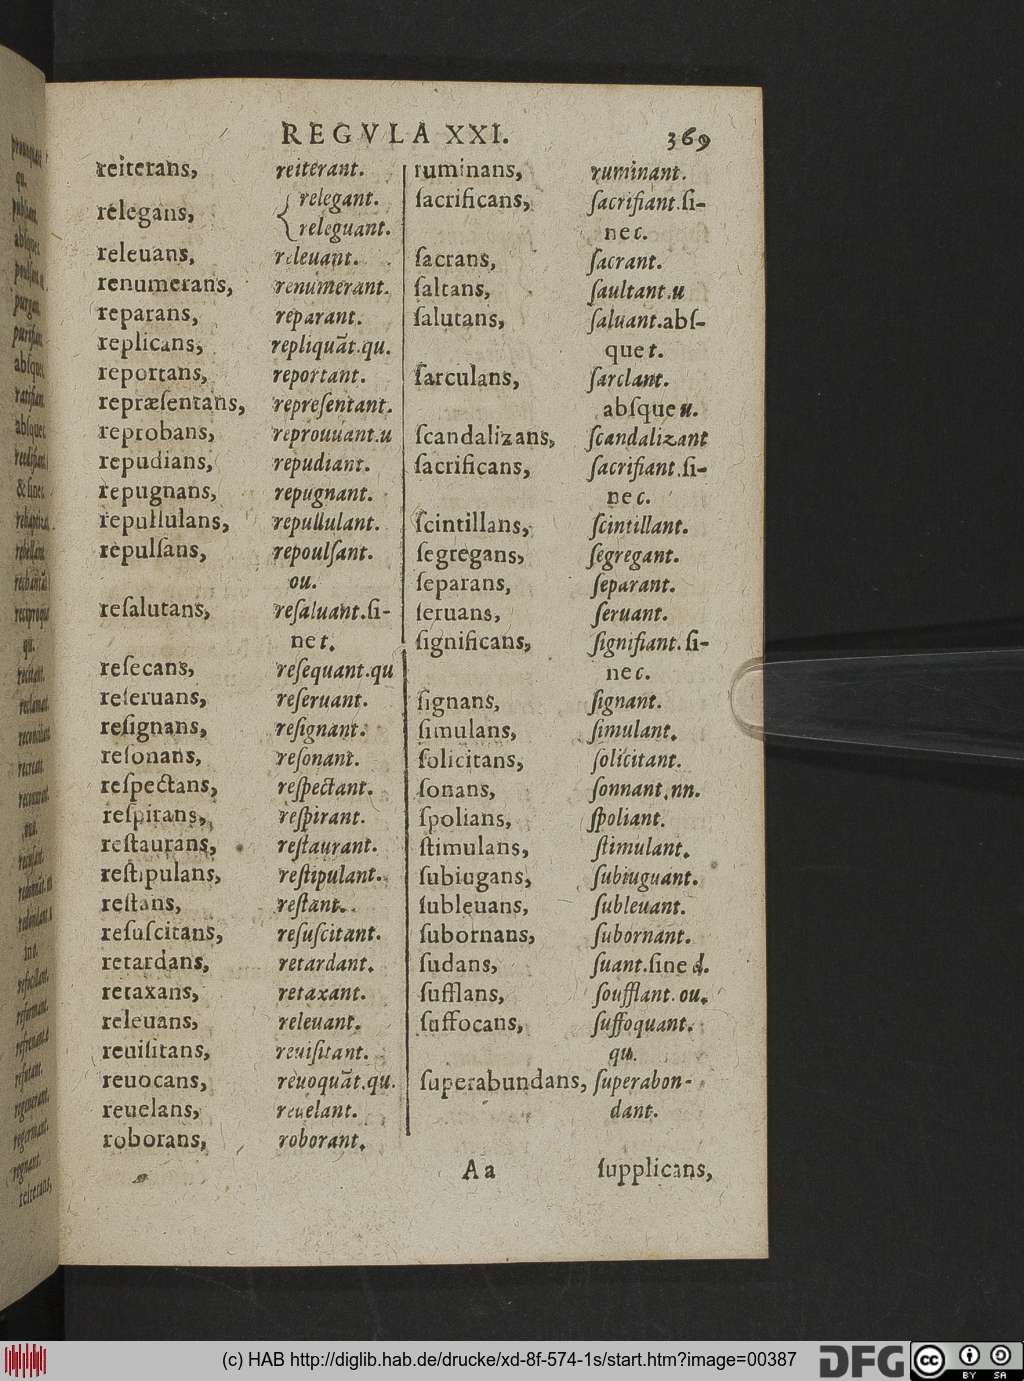 REGVLA XXI. 369
reiterans, reiterant.
relegans, { relegant.
releguant.
releuans, releuant.
renumerans, renumerant.
reparans, reparant.
replicans, repliquãt.qu.
reportans, reportant.
repræſentans, repreſentant.
reprobans, reprouuant.u
repudians, repudiant.
repugnans, repugnant.
repullulans, repullulant.
repulſans, repoulſant.
ou.
reſalutans, reſaluant.ſi-
ne t.
reſecans, reſequant.qu
reſeruans, reſeruant.
reſignans, reſignant.
reſonans, reſonant.
reſpectans, reſpectant.
reſpirans, reſpirant.
reſtaurans, reſtaurant.
reſtipulans, reſtipulant.
reſtans, reſtant.
reſuſcitans, reſuſcitant.
retardans, retardant.
retaxans, retaxant.
releuans, releuant.
reuiſitans, reuiſitant.
reuocans, reuoquãt.qu.
reuelans, reuelant.
roborans, roborant.
ruminans, ruminant.
ſacrificans, ſacrifiant.ſi-
ne c.
ſacrans, ſacrant.
ſaltans, ſaultant.u
ſalutans, ſaluant.abſ-
que t.
ſarculans, ſarclant.
abſque u.
ſcandalizans, ſcandalizant
ſacrificans, ſacrifiant.ſi-
ne c.
ſcintillans, ſcintillant.
ſegregans, ſegregant.
ſeparans, ſeparant.
ſeruans, ſeruant.
ſignificans, ſignifiant.ſi-
ne c.
ſignans, ſignant.
ſimulans, ſimulant.
ſolicitans, ſolicitant.
ſonans, ſonnant.nn.
ſpolians, ſpoliant.
ſtimulans, ſtimulant.
ſubiugans, ſubiuguant.
ſubleuans, ſubleuant.
ſubornans, ſubornant.
ſudans, ſuant.ſine d.
ſufflans, ſoufflant.ou.
ſuffocans, ſuffoquant.
qu.
ſuperabundans, ſuperabon-
dant.
Aa ſupplicans,
(c) HAB http://diglib.hab.de/drucke/xd-8f-574-1s/start.htm?image=00387
DFG
cc BY SA